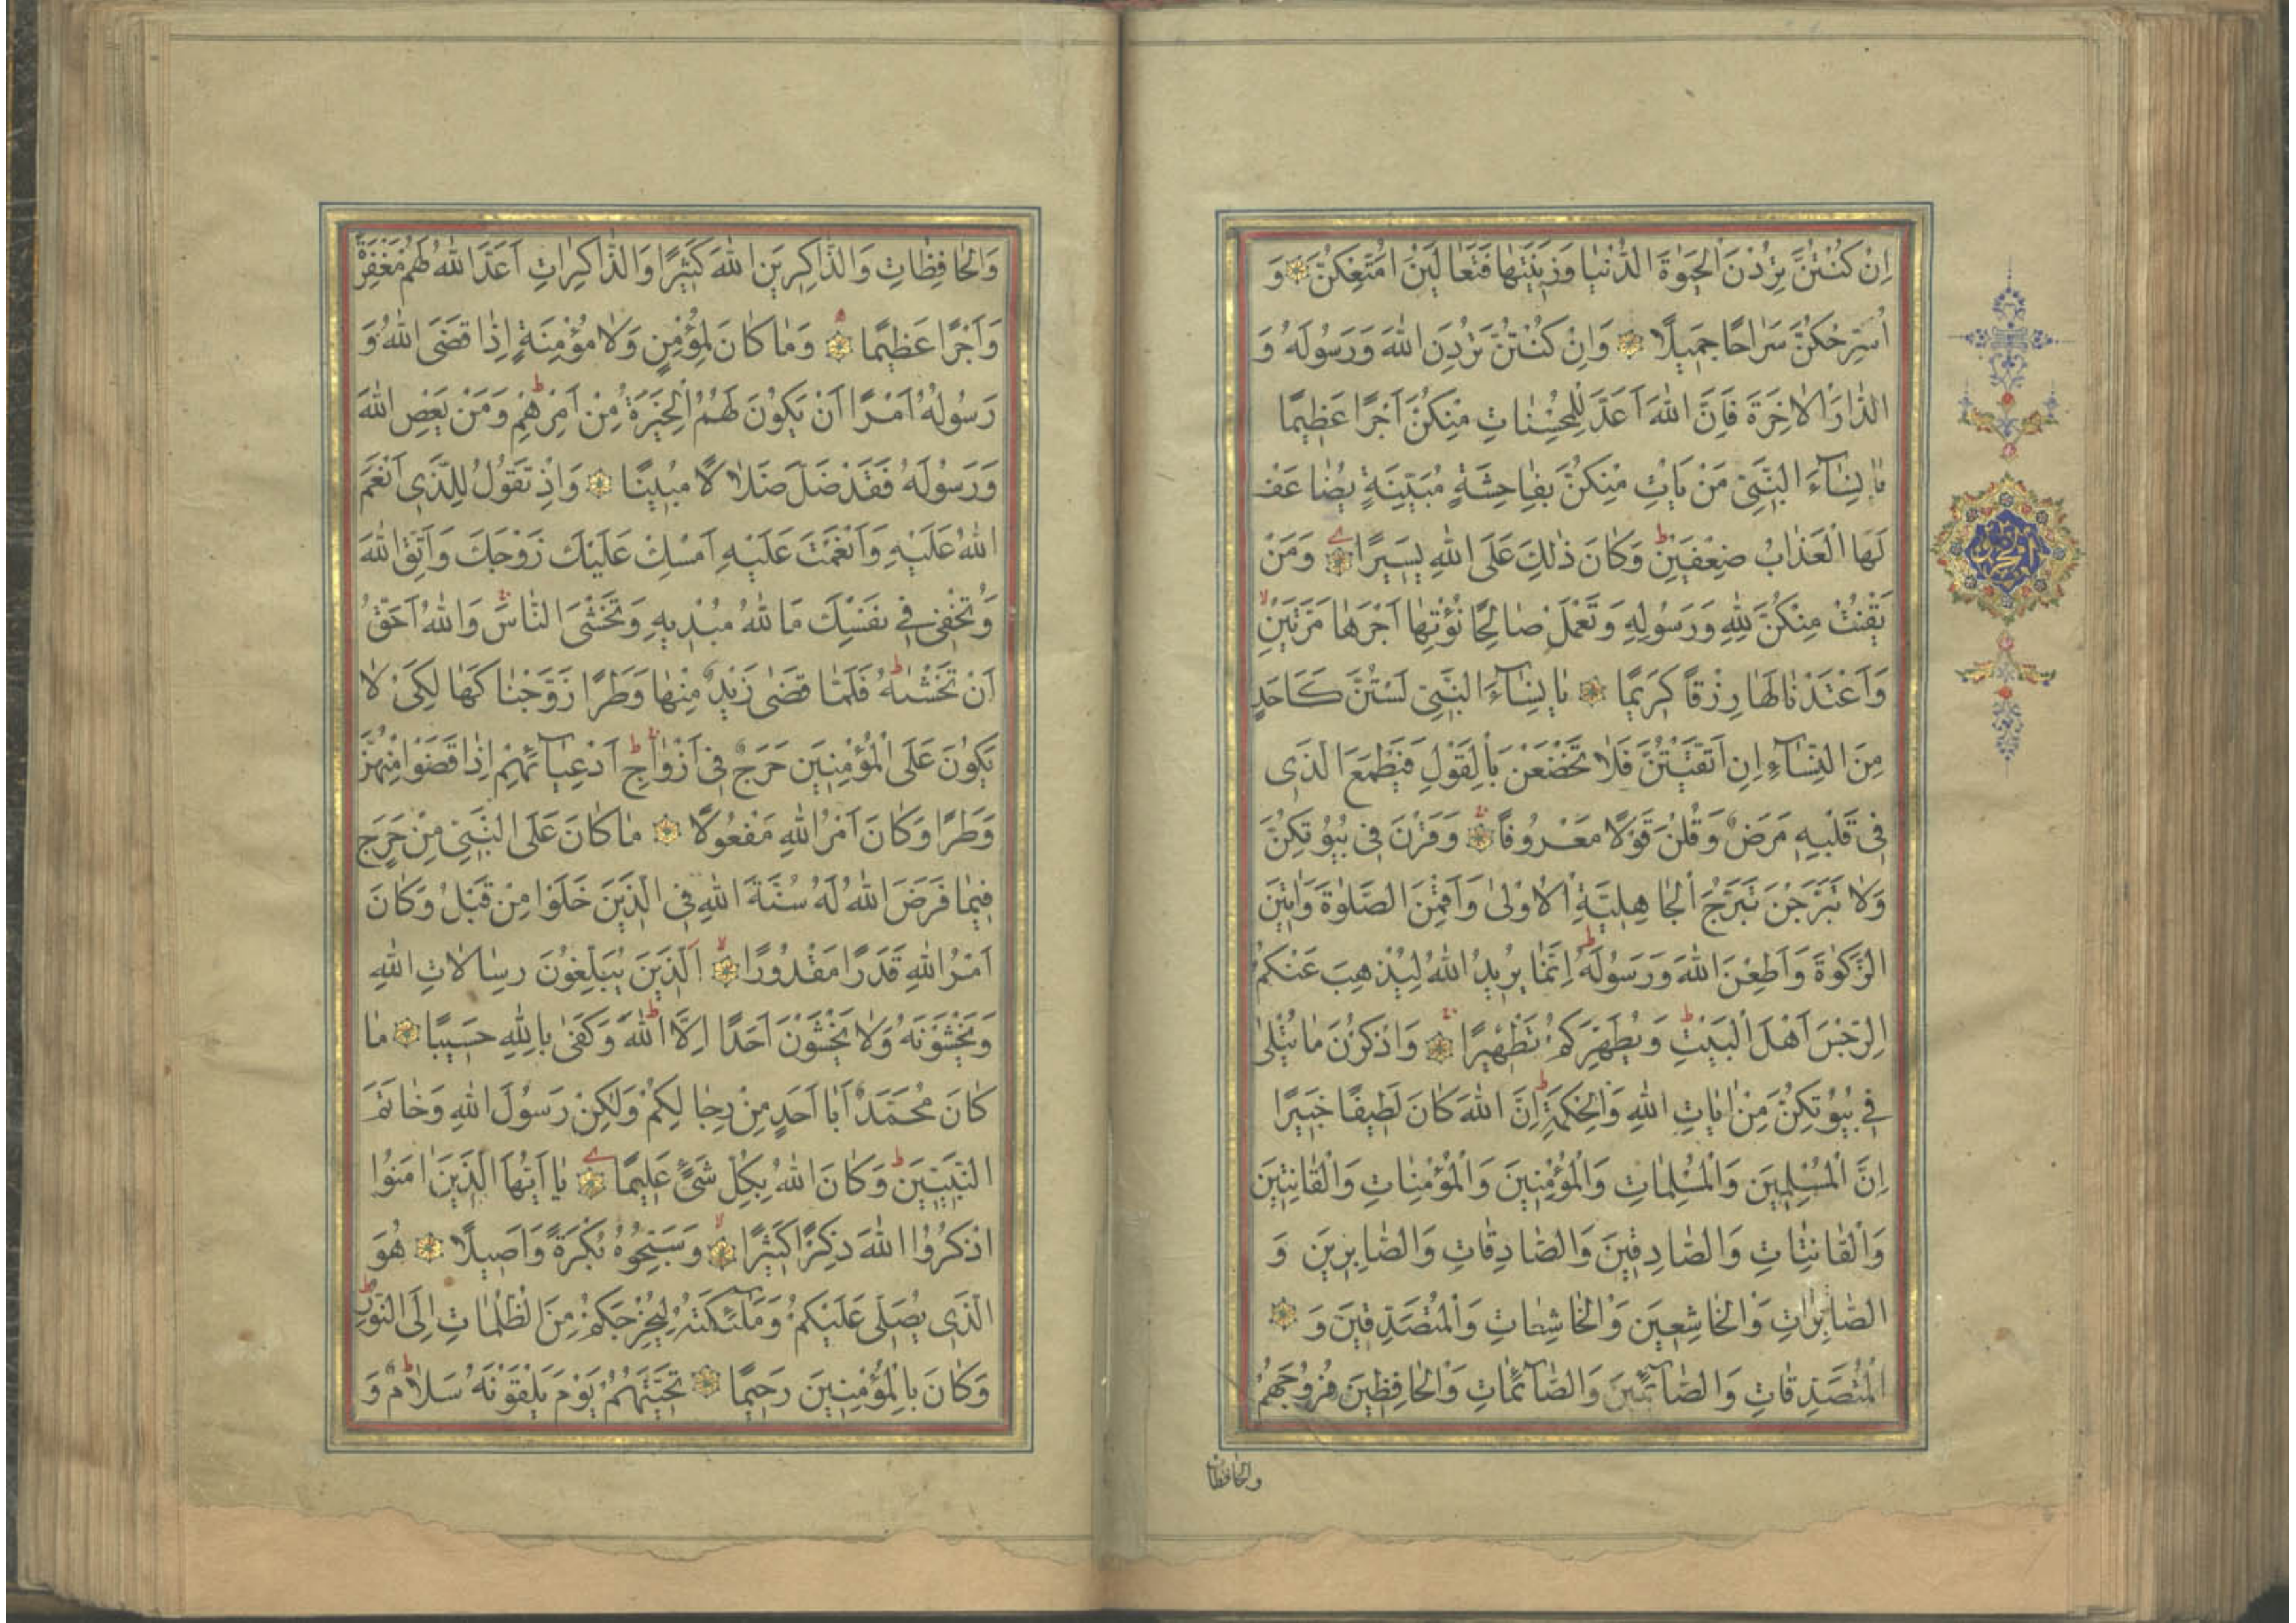 اِنْ كُنْتُنَّ تُرِدْنَ الْحَيٰوةَ الدُّنْيٰا وَزِينَتَهٰا فَتَعٰالَيْنَ اُمَتِّعْكُنَّ وَ
اُسَرِّحْكُنَّ سَرٰاحًا جَمِيلًا وَاِنْ كُنْتُنَّ تُرِدْنَ اللّٰهَ وَرَسُولَهُ وَ
الدّٰارَ الْاٰخِرَةَ فَاِنَّ اللّٰهَ اَعَدَّ لِلْمُحْسِنٰاتِ مِنْكُنَّ اَجْرًا عَظِيمًا
يٰا نِسٰآءَ النَّبِيِّ مَنْ يَاْتِ مِنْكُنَّ بِفٰاحِشَةٍ مُبَيِّنَةٍ يُضٰاعَفْ
لَهَا الْعَذٰابُ ضِعْفَيْنِ وَكٰانَ ذٰلِكَ عَلَى اللّٰهِ يَسِيرًا وَمَنْ
يَقْنُتْ مِنْكُنَّ لِلّٰهِ وَرَسُولِهِ وَتَعْمَلْ صٰالِحًا نُؤْتِهٰا اَجْرَهٰا مَرَّتَيْنِ
وَاَعْتَدْنٰا لَهٰا رِزْقًا كَرِيمًا يٰا نِسٰآءَ النَّبِيِّ لَسْتُنَّ كَاَحَدٍ
مِنَ النِّسٰآءِ اِنِ اتَّقَيْتُنَّ فَلٰا تَخْضَعْنَ بِالْقَوْلِ فَيَطْمَعَ الَّذِي
فِي قَلْبِهِ مَرَضٌ وَقُلْنَ قَوْلًا مَعْرُوفًا وَقَرْنَ فِي بُيُوتِكُنَّ
وَلٰا تَبَرَّجْنَ تَبَرُّجَ الْجٰاهِلِيَّةِ الْاُولىٰ وَاَقِمْنَ الصَّلٰوةَ وَاٰتِينَ
الزَّكٰوةَ وَاَطِعْنَ اللّٰهَ وَرَسُولَهُ اِنَّمٰا يُرِيدُ اللّٰهُ لِيُذْهِبَ عَنْكُمُ
الرِّجْسَ اَهْلَ الْبَيْتِ وَيُطَهِّرَكُمْ تَطْهِيرًا وَاذْكُرْنَ مٰا يُتْلىٰ
فِي بُيُوتِكُنَّ مِنْ اٰيٰاتِ اللّٰهِ وَالْحِكْمَةِ اِنَّ اللّٰهَ كٰانَ لَطِيفًا خَبِيرًا
اِنَّ الْمُسْلِمِينَ وَالْمُسْلِمٰاتِ وَالْمُؤْمِنِينَ وَالْمُؤْمِنٰاتِ وَالْقٰانِتِينَ
وَالْقٰانِتٰاتِ وَالصّٰادِقِينَ وَالصّٰادِقٰاتِ وَالصّٰابِرِينَ وَ
الصّٰابِرٰاتِ وَالْخٰاشِعِينَ وَالْخٰاشِعٰاتِ وَالْمُتَصَدِّقِينَ وَ
الْمُتَصَدِّقٰاتِ وَالصّٰآئِمِينَ وَالصّٰآئِمٰاتِ وَالْحٰافِظِينَ فُرُوجَهُمْ
والحافظات
وَالْحٰافِظٰاتِ وَالذّٰاكِرِينَ اللّٰهَ كَثِيرًا وَالذّٰاكِرٰاتِ اَعَدَّ اللّٰهُ لَهُمْ مَغْفِرَةً
وَاَجْرًا عَظِيمًا وَمٰا كٰانَ لِمُؤْمِنٍ وَلٰا مُؤْمِنَةٍ اِذٰا قَضَى اللّٰهُ وَ
رَسُولُهُ اَمْرًا اَنْ يَكُونَ لَهُمُ الْخِيَرَةُ مِنْ اَمْرِهِمْ وَمَنْ يَعْصِ اللّٰهَ
وَرَسُولَهُ فَقَدْ ضَلَّ ضَلٰالًا مُبِينًا وَاِذْ تَقُولُ لِلَّذِي اَنْعَمَ
اللّٰهُ عَلَيْهِ وَاَنْعَمْتَ عَلَيْهِ اَمْسِكْ عَلَيْكَ زَوْجَكَ وَاتَّقِ اللّٰهَ
وَتُخْفِي فِي نَفْسِكَ مَا اللّٰهُ مُبْدِيهِ وَتَخْشَى النّٰاسَ وَاللّٰهُ اَحَقُّ
اَنْ تَخْشٰيهُ فَلَمّٰا قَضىٰ زَيْدٌ مِنْهٰا وَطَرًا زَوَّجْنٰاكَهٰا لِكَيْ لٰا
يَكُونَ عَلَى الْمُؤْمِنِينَ حَرَجٌ فِي اَزْوٰاجِ اَدْعِيٰآئِهِمْ اِذٰا قَضَوْا مِنْهُنَّ
وَطَرًا وَكٰانَ اَمْرُ اللّٰهِ مَفْعُولًا مٰا كٰانَ عَلَى النَّبِيِّ مِنْ حَرَجٍ
فِيمٰا فَرَضَ اللّٰهُ لَهُ سُنَّةَ اللّٰهِ فِي الَّذِينَ خَلَوْا مِنْ قَبْلُ وَكٰانَ
اَمْرُ اللّٰهِ قَدَرًا مَقْدُورًا اَلَّذِينَ يُبَلِّغُونَ رِسٰالٰاتِ اللّٰهِ
وَيَخْشَوْنَهُ وَلٰا يَخْشَوْنَ اَحَدًا اِلَّا اللّٰهَ وَكَفىٰ بِاللّٰهِ حَسِيبًا مٰا
كٰانَ مُحَمَّدٌ اَبٰا اَحَدٍ مِنْ رِجٰالِكُمْ وَلٰكِنْ رَسُولَ اللّٰهِ وَخٰاتَمَ
النَّبِيِّينَ وَكٰانَ اللّٰهُ بِكُلِّ شَيْءٍ عَلِيمًا يٰا اَيُّهَا الَّذِينَ اٰمَنُوا
اذْكُرُوا اللّٰهَ ذِكْرًا كَثِيرًا وَسَبِّحُوهُ بُكْرَةً وَاَصِيلًا هُوَ
الَّذِي يُصَلِّي عَلَيْكُمْ وَمَلٰٓئِكَتُهُ لِيُخْرِجَكُمْ مِنَ الظُّلُمٰاتِ اِلَى النُّورِ
وَكٰانَ بِالْمُؤْمِنِينَ رَحِيمًا تَحِيَّتُهُمْ يَوْمَ يَلْقَوْنَهُ سَلٰامٌ وَ